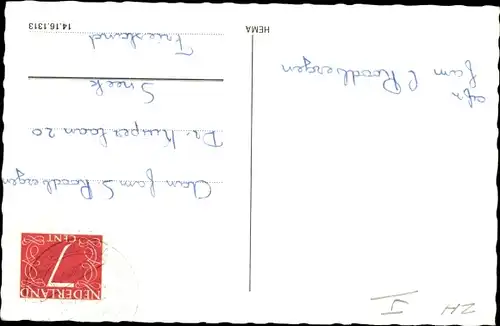 afz
fam C Roodbergen
HEMA
Aan fam S Roodbergen
Dr. Kuyperlaan 20
Sneek
Friesland
14.16.1313
7
CENT
NEDERLAND
ZH
I